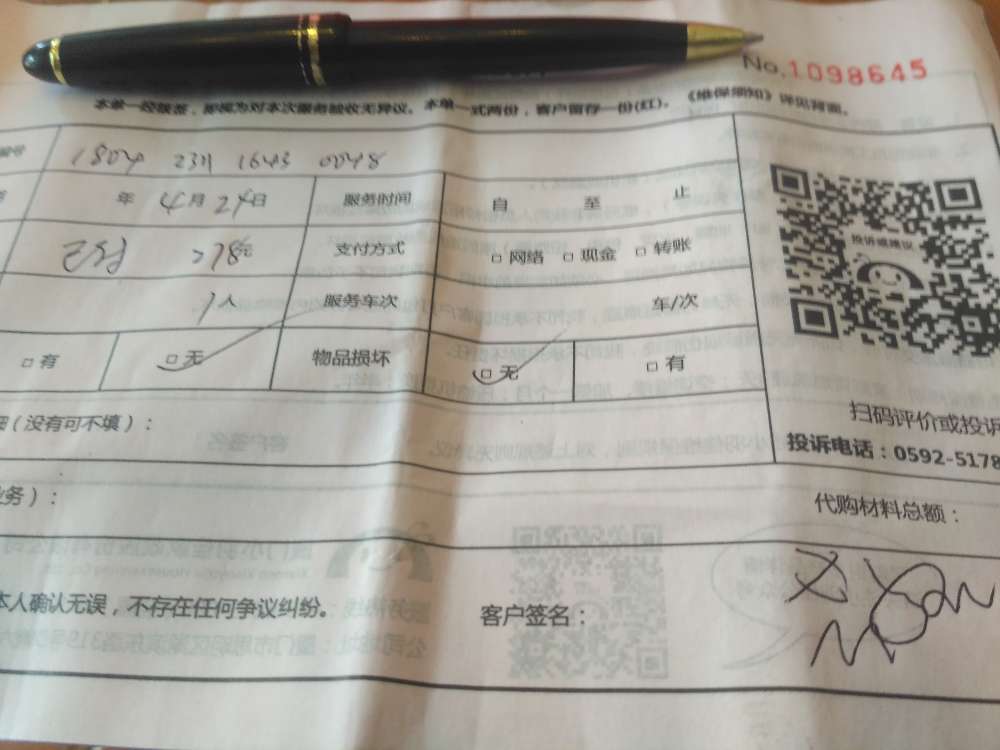 No.1098645
本单一经签签，即视为对本次服务验收无异议。本单一式两份，客户留存一份(红)。《维保须知》详见背面。
编号 1804 2311 1643 0048
年 4月24日 服务时间 自 至 止
已付 278元 支付方式 □ 网络 □ 现金 □ 转账
1人 服务车次 车/次
□ 有 □ 无 物品损坏 □ 无 □ 有
投诉或建议
（没有可不填）：
扫码评价或投诉
投诉电话：0592-5178
务）：
代购材料总额：
本人确认无误，不存在任何争议纠纷。
客户签名：